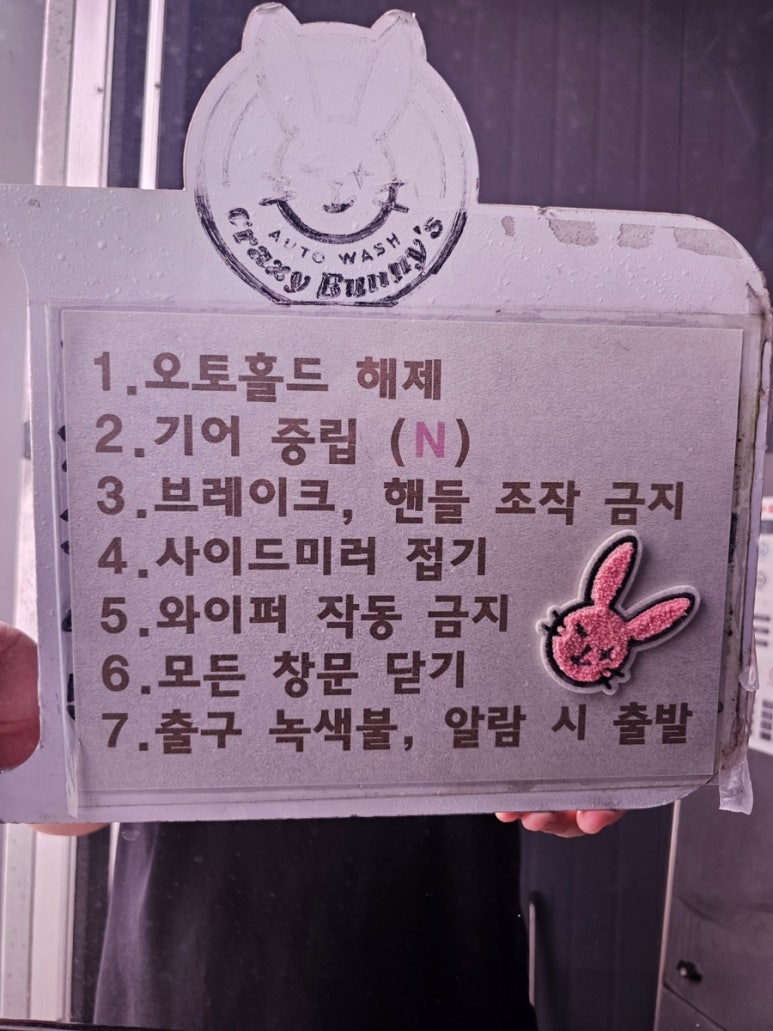 AUTO WASH
Crazy Bunny's
1.오토홀드 해제
2.기어 중립 (N)
3.브레이크, 핸들 조작 금지
4.사이드미러 접기
5.와이퍼 작동 금지
6.모든 창문 닫기
7.출구 녹색불, 알람 시 출발